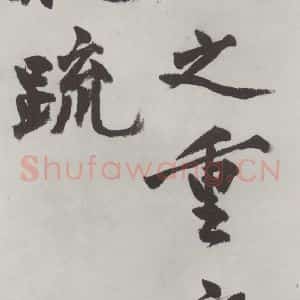 之重
疏
Shufawang.CN